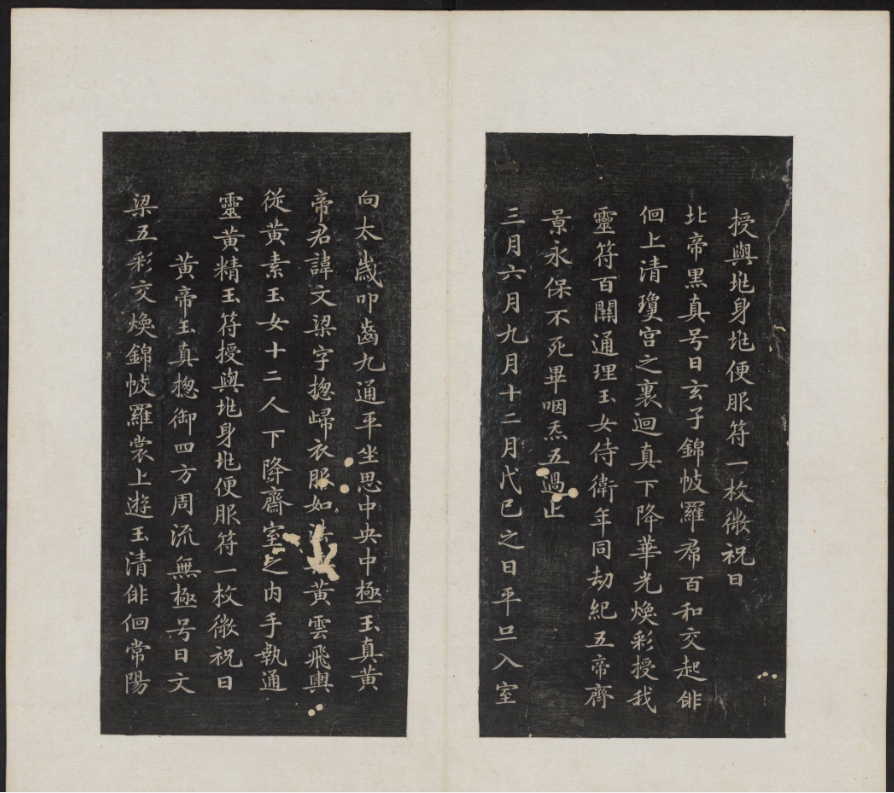 授與兆身兆便服符一枚微祝曰
北帝黑真号曰玄子錦帔羅帬百和交起俳
佪上清瓊宮之裏迴真下降華光煥彩授我
靈符百關通理玉女侍衛年同劫紀五帝齊
景永保不死畢咽炁五過止
三月六月九月十二月戊己之日平旦入室
向太歲叩齒九通平坐思中央中極玉真黃
帝君諱文梁字揔歸衣服如 黃雲飛輿
從黃素玉女十二人下降齋室之內手執通
靈黃精玉符授與兆身兆便服符一枚微祝曰
黃帝玉真揔御四方周流無極号曰文
梁五彩交煥錦帔羅裳上遊玉清俳佪常陽